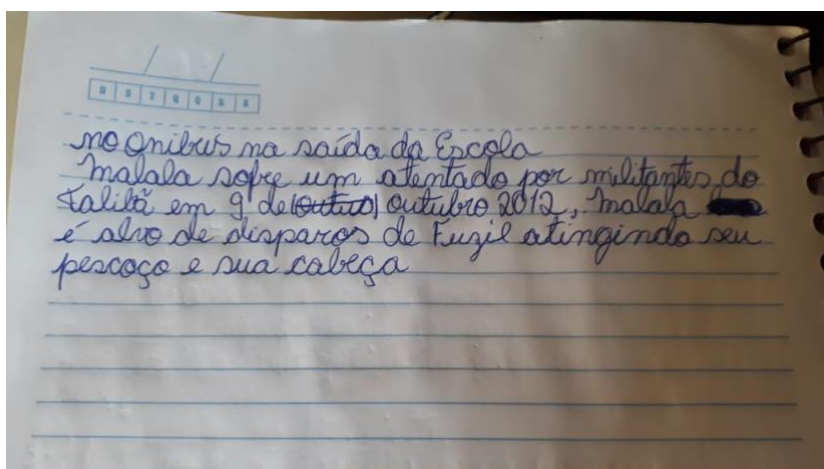 D S T Q Q S S
no Ônibus na saída da Escola
Malala sofre um atentado por militantes do
Talibã em 9 de (outuo) outubro 2012, Malala
é alvo de disparos de Fuzil atingindo seu
pescoço e sua cabeça